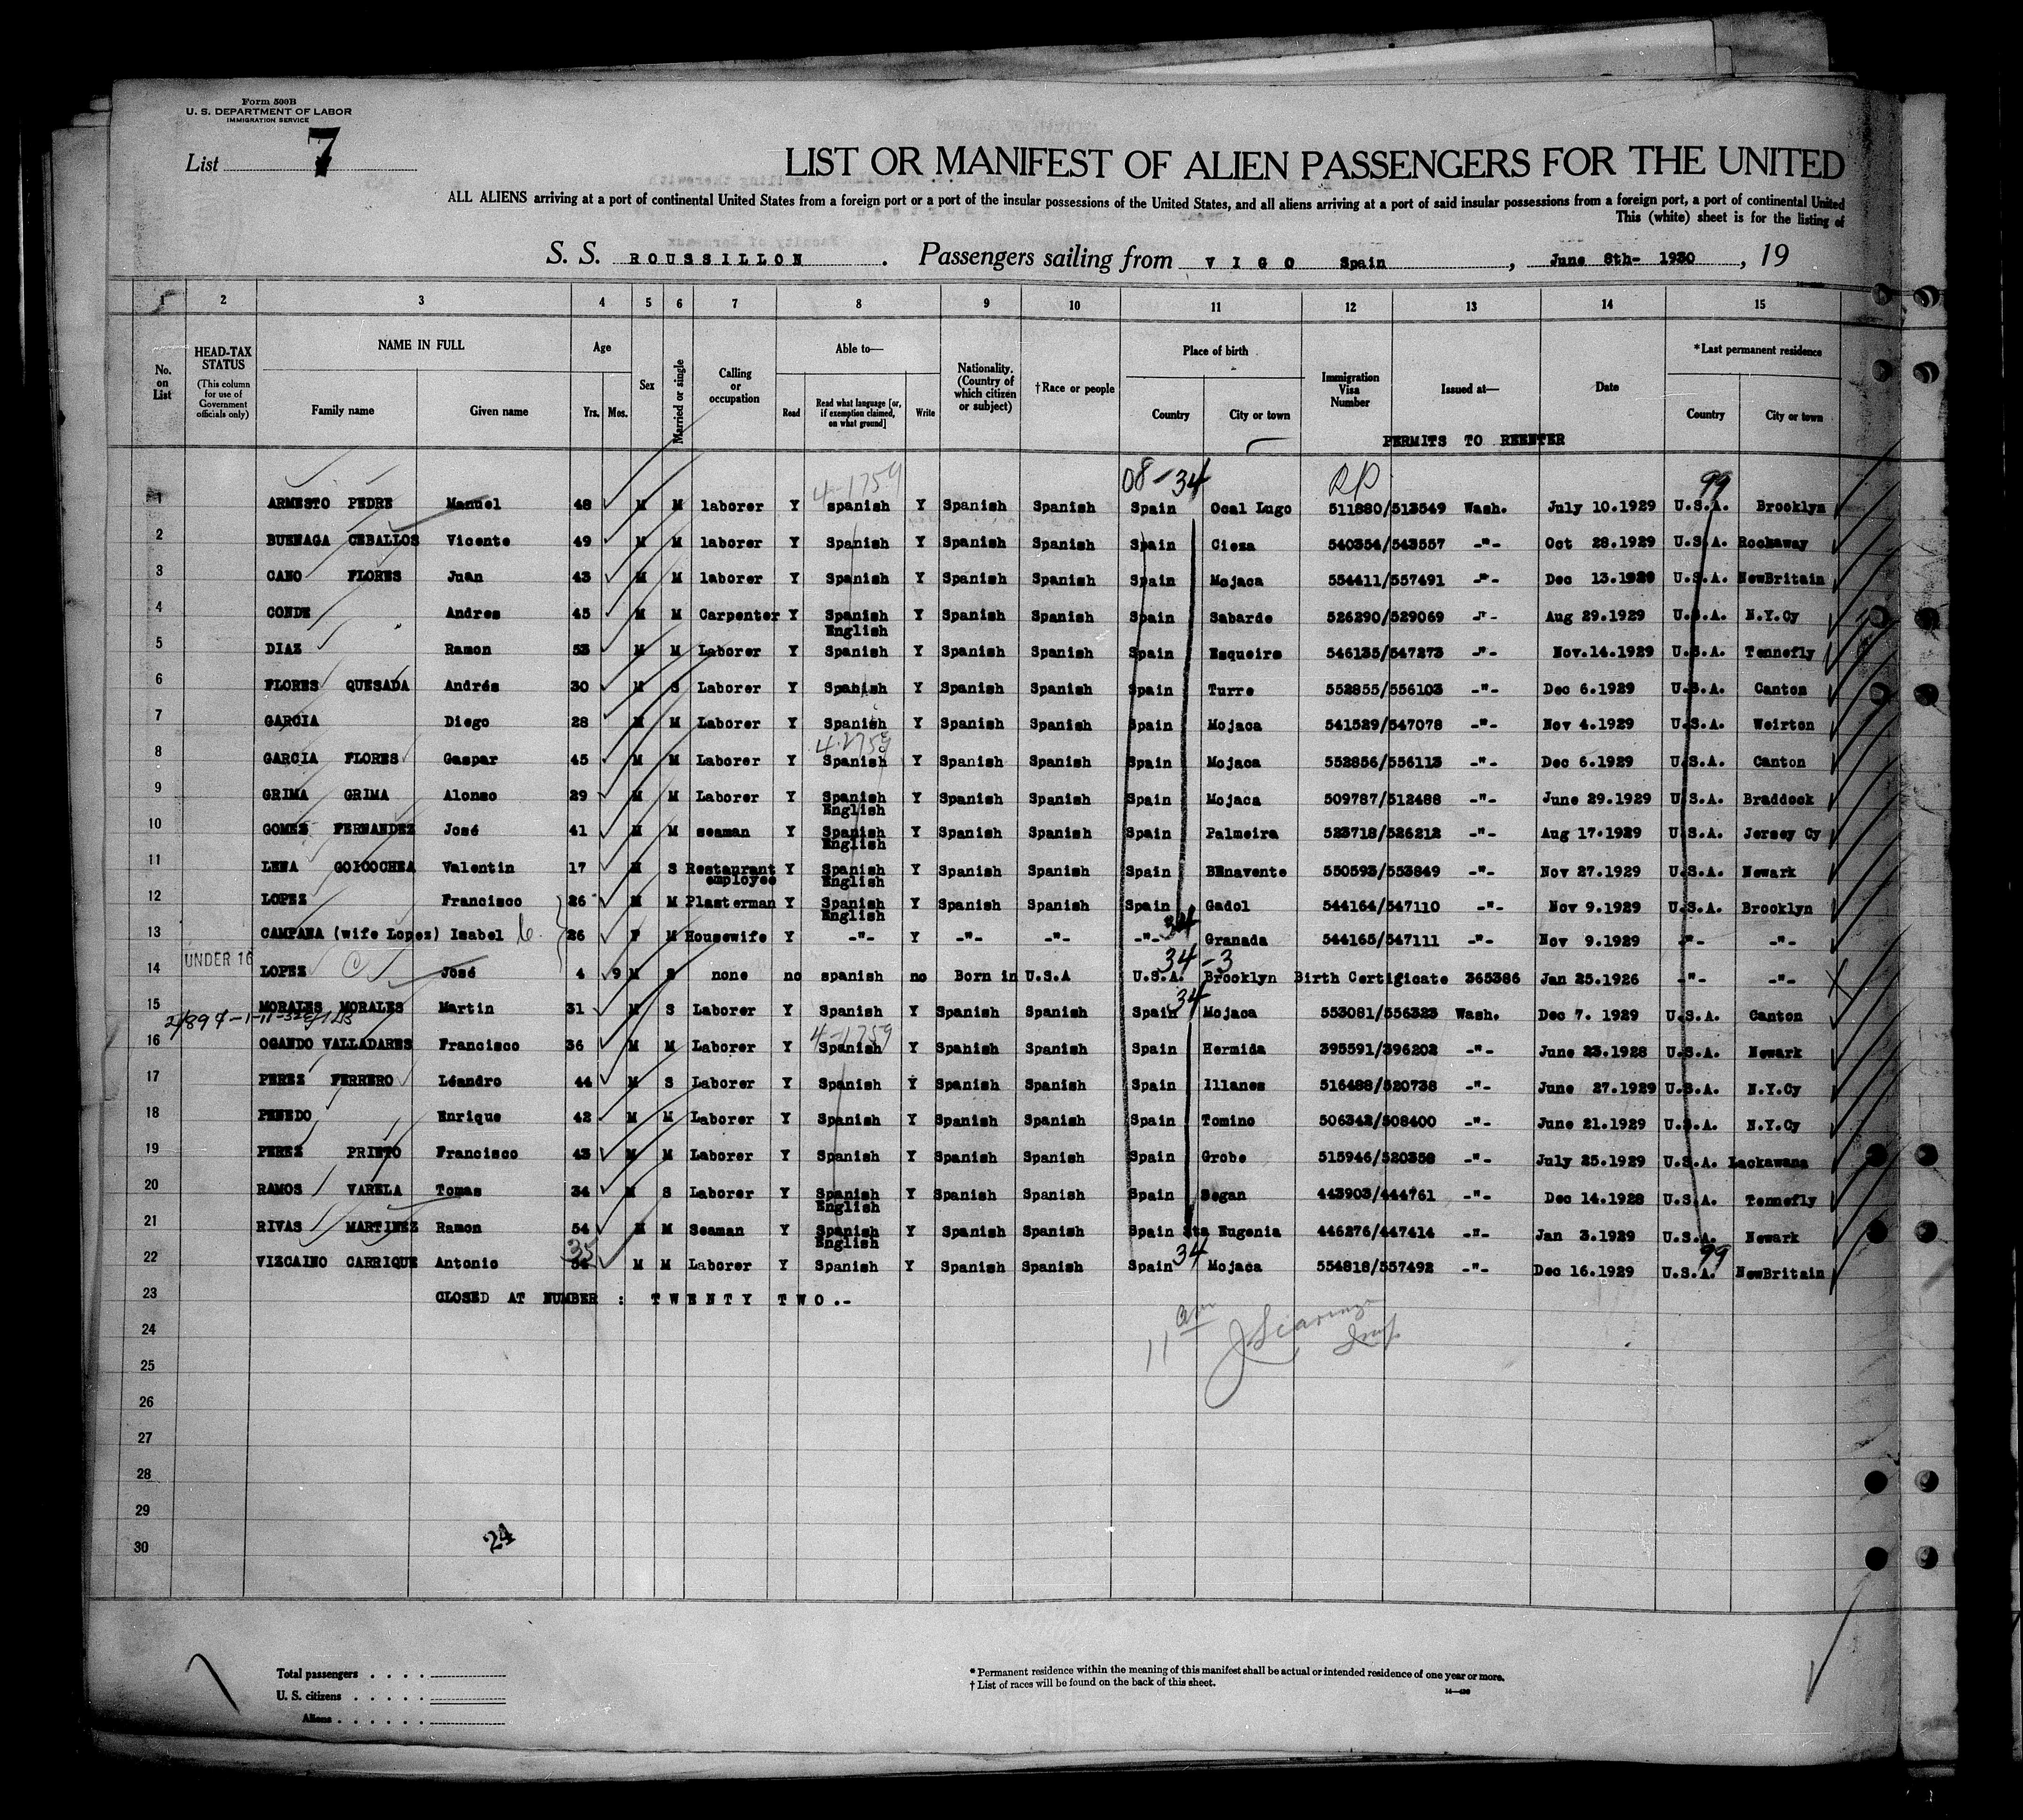 Form 500B
U. S. DEPARTMENT OF LABOR
IMMIGRATION SERVICE
List 7
LIST OR MANIFEST OF ALIEN PASSENGERS FOR THE UNITED
ALL ALIENS arriving at a port of continental United States from a foreign port or a port of the insular possessions of the United States, and all aliens arriving at a port of said insular possessions from a foreign port, a port of continental United
This (white) sheet is for the listing of
S. S. ROUSSILLON . Passengers sailing from VIGO Spain , June 8th- 1930 , 19
1 2 3 4 5 6 7 8 9 10 11 12 13 14 15
No. on List
HEAD-TAX STATUS (This column for use of Government officials only)
NAME IN FULL Family name Given name
Age Yrs. Mos.
Sex
Married or single
Calling or occupation
Able to— Read Read what language [or, if exemption claimed, on what ground] Write
Nationality. (Country of which citizen or subject)
†Race or people
Place of birth Country City or town
Immigration Visa Number
Issued at—
Date
*Last permanent residence Country City or town
PERMITS TO REENTER
4-1759 08-34 RP 99
1 ARMESTO PEDRE Manuel 48 M M laborer Y spanish Y Spanish Spanish Spain Ocal Lugo 511880/513549 Wash. July 10.1929 U.S.A. Brooklyn
2 BUENAGA CEBALLOS Vicente 49 M M laborer Y Spanish Y Spanish Spanish Spain Cieza 540354/543557 -"- Oct 28.1929 U.S.A. Rockaway
3 CANO FLORES Juan 43 M M laborer Y Spanish Y Spanish Spanish Spain Mojaca 554411/557491 -"- Dec 13.1929 U.S.A. NewBritain
4 CONDE Andres 45 M M Carpenter Y Spanish English Y Spanish Spanish Spain Sabarde 526290/529069 -"- Aug 29.1929 U.S.A. N.Y.Cy
5 DIAZ Ramon 53 M M Laborer Y Spanish Y Spanish Spanish Spain Esqueiro 546135/547273 -"- Nov.14.1929 U.S.A. Tennefly
6 FLORES QUESADA Andrés 30 M S Laborer Y Spahish Y Spanish Spanish Spain Turre 552855/556103 -"- Dec 6.1929 U.S.A. Canton
7 GARCIA Diego 28 M M Laborer Y Spanish Y Spanish Spanish Spain Mojaca 541529/547078 -"- Nov 4.1929 U.S.A. Weirton
8 GARCIA FLORES Gaspar 45 M M Laborer Y Spanish Y Spanish Spanish Spain Mojaca 552856/556113 -"- Dec 6.1929 U.S.A. Canton
9 GRIMA GRIMA Alonso 29 M M Laborer Y Spanish English Y Spanish Spanish Spain Mojaca 509787/512488 -"- June 29.1929 U.S.A. Braddock
10 GOMEZ FERNANDEZ José 41 M M seaman Y Spanish English Y Spanish Spanish Spain Palmeira 523718/526212 -"- Aug 17.1929 U.S.A. Jersey Cy
11 LENA GOICOCHEA Valentin 17 M S Restaurant employee Y Spanish English Y Spanish Spanish Spain BEnavente 550593/553849 -"- Nov 27.1929 U.S.A. Newark
12 LOPEZ Francisco 26 M M Plasterman Y Spanish English Y Spanish Spanish Spain Gadol 544164/547110 -"- Nov 9.1929 U.S.A. Brooklyn
13 CAMPANA (wife Lopez) Isabel 26 F M Housewife Y -"- Y -"- -"- -"- 34 Granada 544165/547111 -"- Nov 9.1929 -"- -"-
UNDER 16
14 LOPEZ José 4 9 M S none no spanish no Born in U.S.A U.S.A. 34-3 Brooklyn Birth Certificate 365386 Jan 25.1926 -"- -"-
15 MORALES MORALES Martin 31 M S Laborer Y Spanish Y Spanish Spanish Spain 34 Mojaca 553081/556323 Wash. Dec 7. 1929 U.S.A. Canton
4-1759
16 OGANDO VALLADARES Francisco 36 M M Laborer Y Spanish Y Spahish Spanish Spain Hermida 395591/396202 -"- June 23.1928 U.S.A. Newark
17 PEREZ FERRERO Léandro 44 M S Laborer Y Spanish Y Spanish Spanish Spain Illanes 516488/520738 -"- June 27.1929 U.S.A. N.Y.Cy
18 PENEDO Enrique 42 M M Laborer Y Spanish Y Spanish Spanish Spain Tomino 506342/508400 -"- June 21.1929 U.S.A. N.Y.Cy
19 PEREZ PRIETO Francisco 43 M M Laborer Y Spanish Y Spanish Spanish Spain Grobe 515946/520358 -"- July 25.1929 U.S.A. Lackawana
20 RAMOS VARELA Tomas 34 M S Laborer Y Spanish English Y Spanish Spanish Spain Began 443903/444761 -"- Dec 14.1928 U.S.A. Tennefly
21 RIVAS MARTINEZ Ramon 54 M M Seaman Y Spanish English Y Spanish Spanish Spain Sta Eugenia 446276/447414 -"- Jan 3.1929 U.S.A. Newark
22 VIZCAINO CARRIQUE Antonio 35 M M Laborer Y Spanish Y Spanish Spanish Spain 34 Mojaca 554818/557492 -"- Dec 16.1929 U.S.A. 99 NewBritain
23 CLOSED AT NUMBER : TWENTY TWO.-
24
25
26
27
28
29
30
11 am
24
Total passengers
U. S. citizens
Aliens
* Permanent residence within the meaning of this manifest shall be actual or intended residence of one year or more.
† List of races will be found on the back of this sheet.